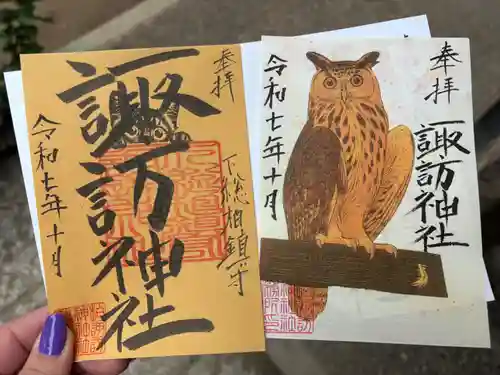 奉拝
諏訪神社
下総相鎮守
令和七年十月
奉拝
諏訪神社
令和七年十月